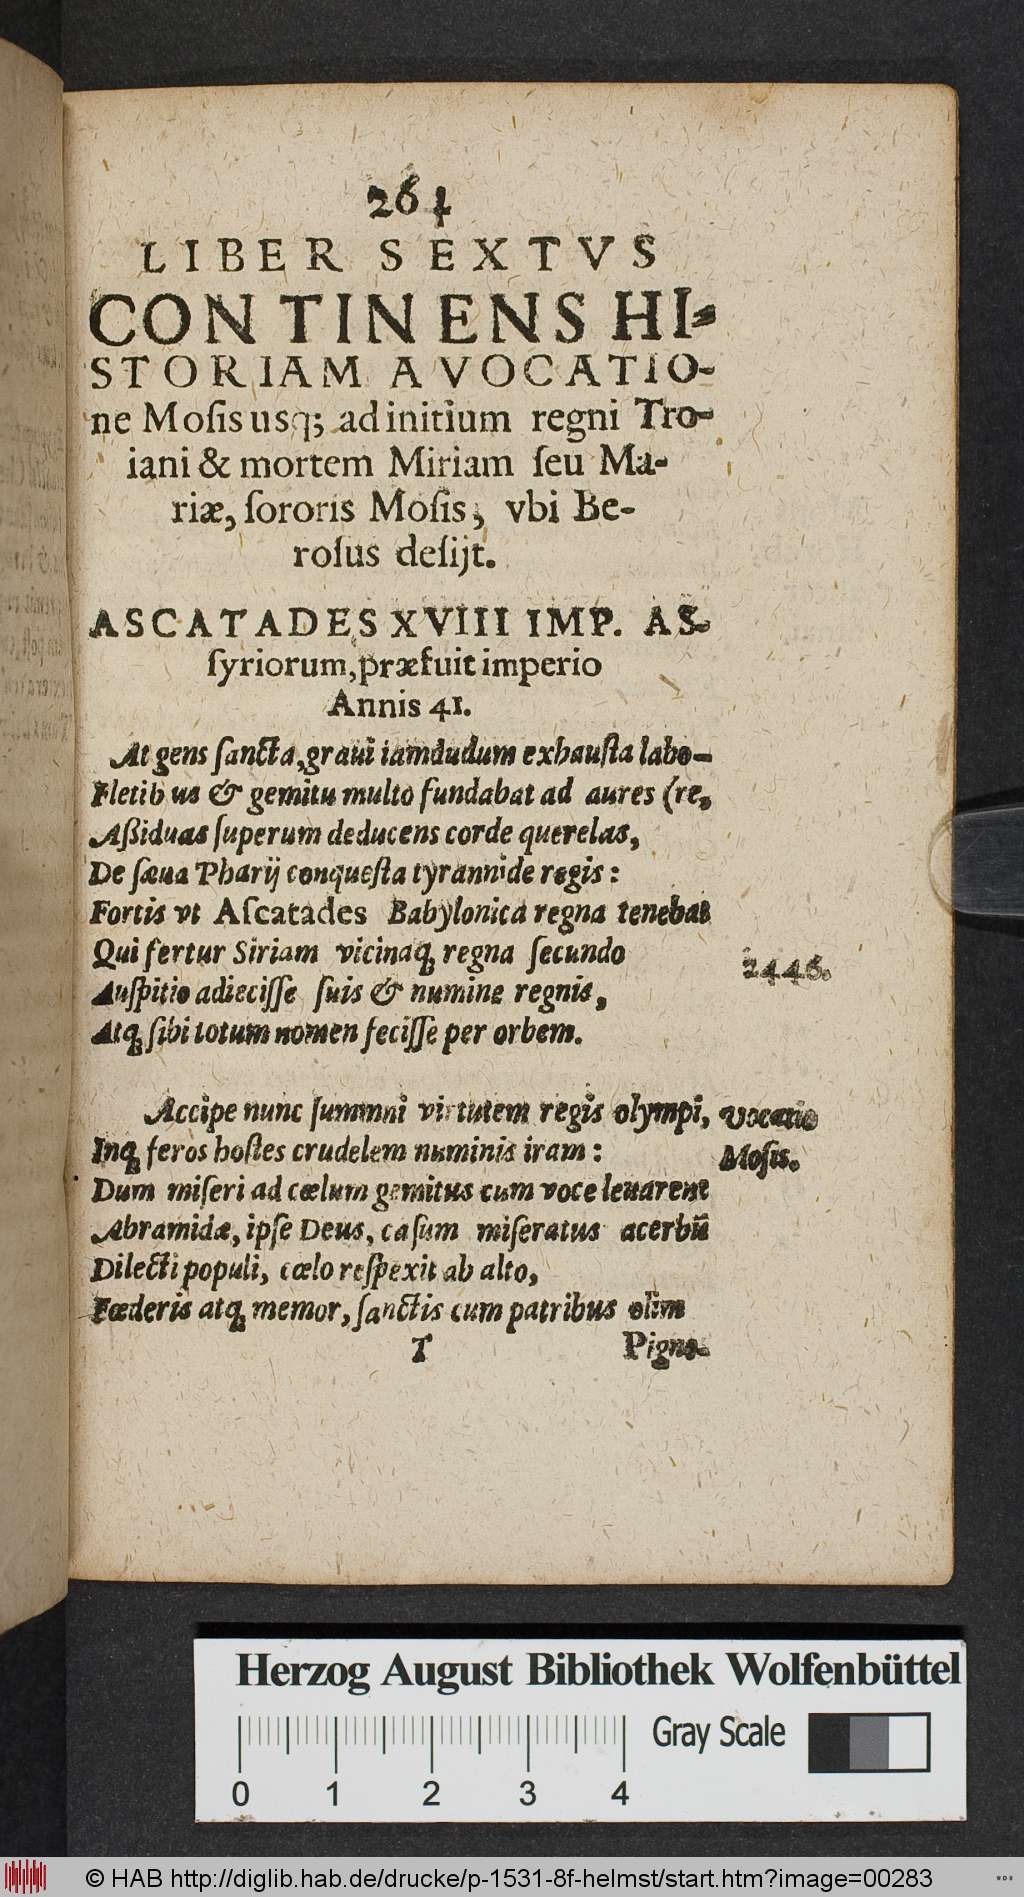 264
LIBER SEXTVS
CONTINENS HI-
STORIAM A VOCATIO-
ne Moſis usq; ad initium regni Tro-
iani & mortem Miriam ſeu Ma-
riæ, ſororis Moſis, vbi Be-
roſus deſijt.
ASCATADES XVIII IMP. AS-
ſyriorum, præfuit imperio
Annis 41.
At gens ſancta, graui iamdudum exhauſta labo-
Fletibus & gemitu multo fundabat ad aures (re,
Aßiduas ſuperum deducens corde querelas,
De ſæua Pharij conqueſta tyrannide regis:
Fortis vt Aſcatades Babylonica regna tenebat
Qui fertur Siriam vicinaq; regna ſecundo
2446.
Auſpitio adieciſſe ſuis & numine regnis,
Atq; ſibi totum nomen feciſſe per orbem.
Accipe nunc ſummni virtutem regis olympi,
Vocatio
Inq; feros hoſtes crudelem numinis iram:
Moſis.
Dum miſeri ad cœlum gemitus cum voce leuarent
Abramidæ, ipſe Deus, caſum miſeratus acerbũ
Dilecti populi, cœlo reſpexit ab alto,
Fœderis atq; memor, ſanctis cum patribus olim
T
Pigno-
Herzog August Bibliothek Wolfenbüttel
Gray Scale
0 1 2 3 4
© HAB http://diglib.hab.de/drucke/p-1531-8f-helmst/start.htm?image=00283